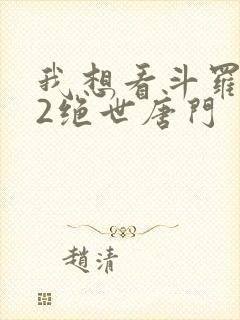 我想看斗羅
2绝世唐門
趙清